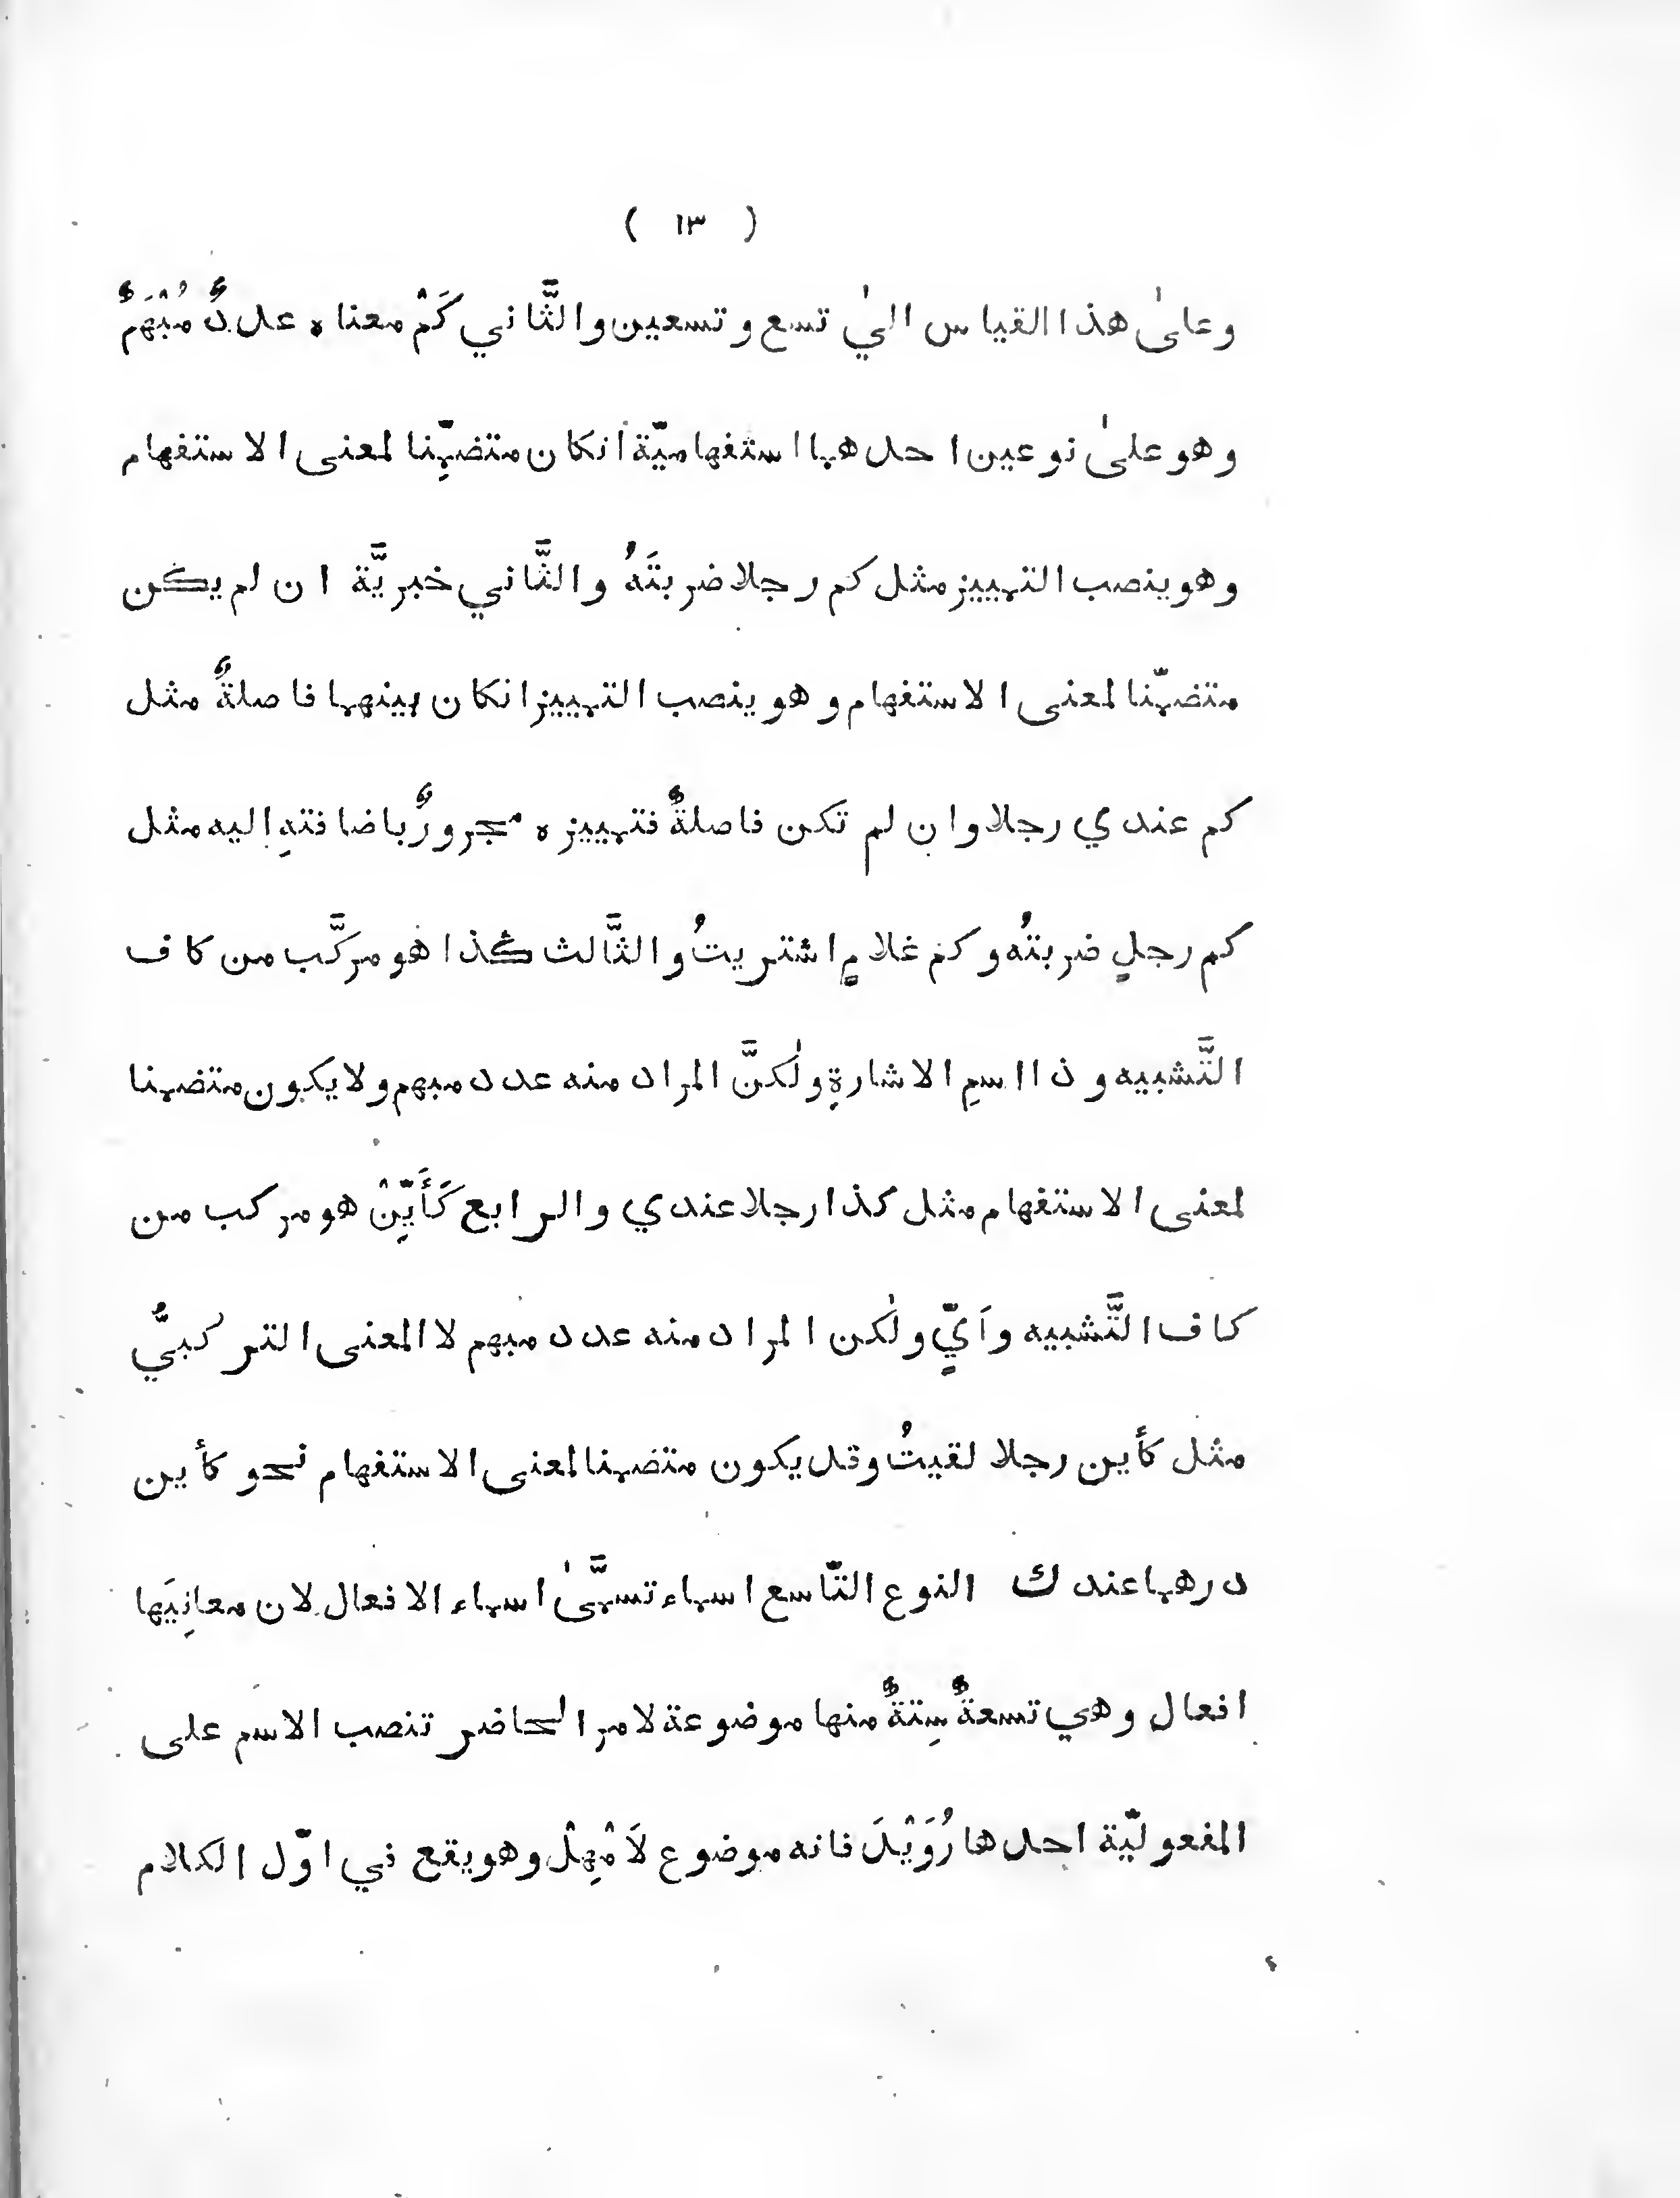 ( ١٣ )
وعلىٰ هذا القياس اليٰ تسع وتسعين والثَّاني كَمْ معناه عددٌ مُبْهَمٌ
وهو علىٰ نوعين احدهما استفهاميّة انكان متضمِّنا لمعنى الاستفهام
وهو ينصب التمييز مثل كم رجلا ضربتَهُ والثَّاني خبريَّة ان لم يكن
متضمّنا لمعنى الاستفهام وهو ينصب التمييز انكان بينهما فاصلةٌ مثل
كم عندي رجلا وان لم تكن فاصلةٌ فتمييزه مجرورٌ باضافتهِ اليه مثل
كم رجلٍ ضربتُه وكم غلامٍ اشتريتُ والثَّالث كذا هو مركَّب من كاف
التَّشبيه وذا اسمِ الاشارةِ ولٰكنَّ المراد منه عدد مبهم ولا يكون متضمنا
لمعنى الاستفهام مثل كذا رجلا عندي والرابع كَأَيِّنْ هو مركب من
كاف التَّشبيه واَيٍّ ولٰكن المراد منه عدد مبهم لا المعنى التركبيُّ
مثل كأين رجلا لقيتُ وقد يكون متضمنا لمعنى الاستفهام نحو كأين
درهما عندك النوع التّاسع اسماء تسمَّىٰ اسماء الافعال لان معانِيَها
افعال وهي تسعةٌ سِتةٌ منها موضوعة لامر الحاضر تنصب الاسم على
المفعوليّة احدها رُوَيْدَ فانه موضوع لاَمْهِلْ وهو يقع في اوّل الكلام